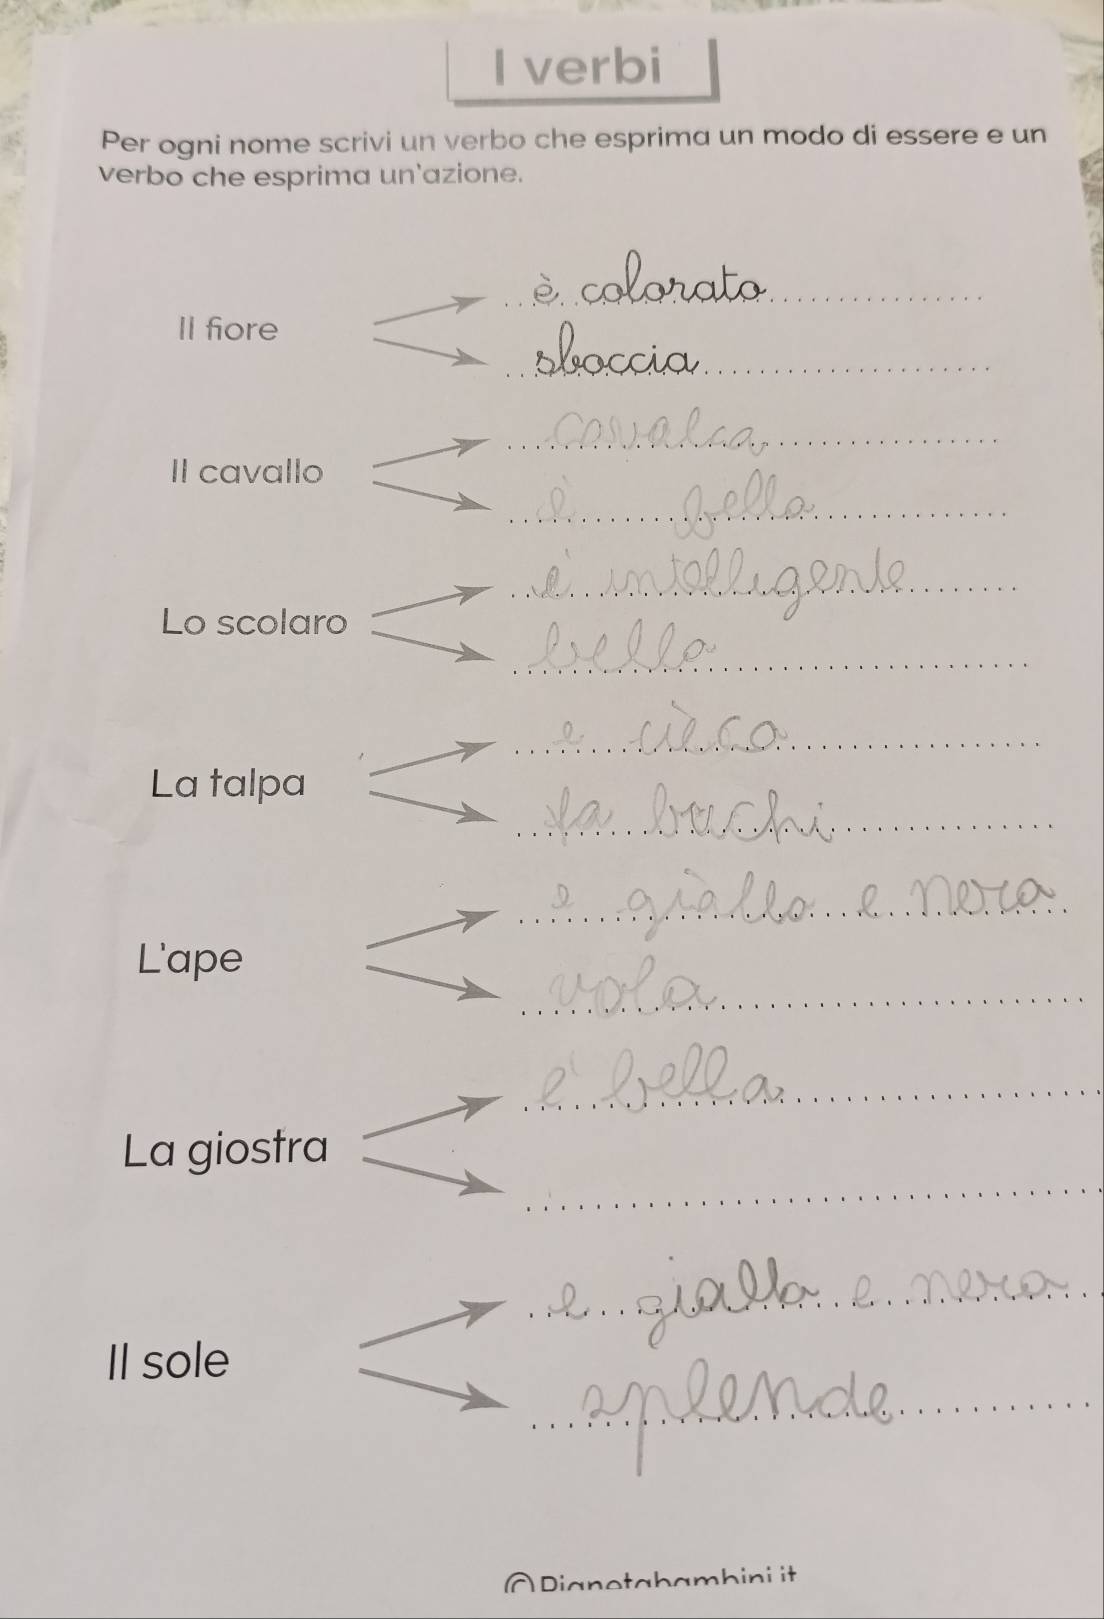 I verbi
Per ogni nome scrivi un verbo che esprima un modo di essere e un
verbo che esprima un'azione.
è colorato
Il fiore
sboccia
cavalca
Il cavallo
è bello
è intelligente
Lo scolaro
bello
e cièco
La talpa
fa buchi
e giàllo e nera
L'ape
vola
è bella
La giostra
e giallo e nero
Il sole
splende
© Pianetabambini.it